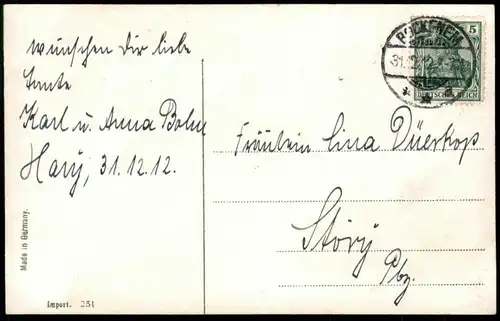 wünschen dir liebe
Tante
Karl u. Anna Bolm
Hary, 31.12.12.
Made in Germany.
Import. 251
BOCKENEM
31.12.12
5
DEUTSCHES REICH
Fräulein Lina Düerkop
Störy
Pbz.